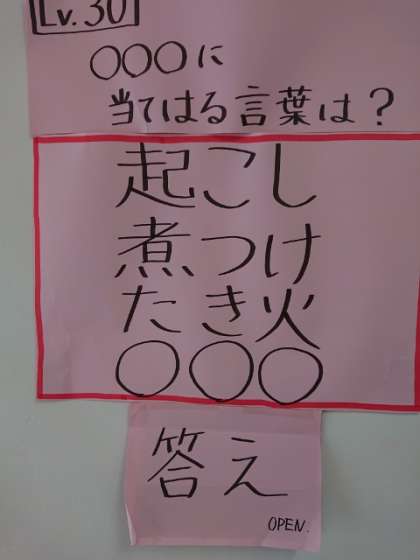 Lv.30
○○○に
当てはる言葉は？
起こし
煮つけ
たき火
○○○
答え
OPEN.